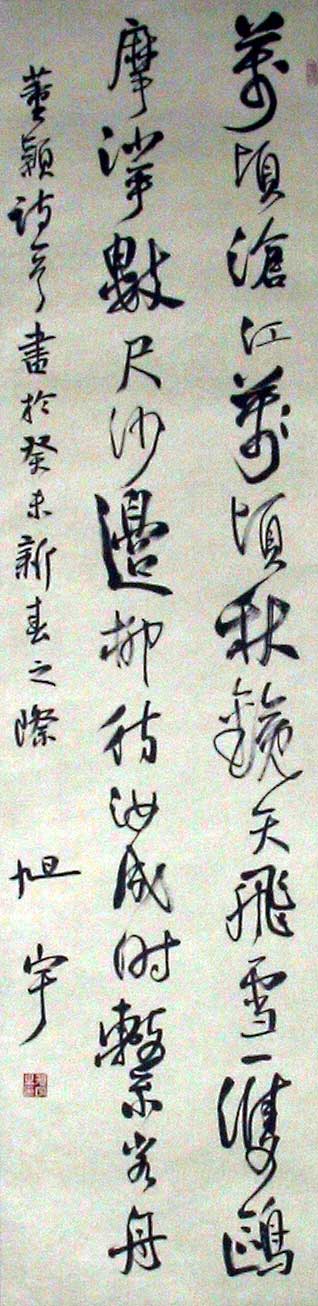 萬頃滄江萬頃秋鏡天飛雪一雙鷗
摩挲數尺沙邊柳待汝成时繫客舟
董穎詩一首書於癸未新春之際
旭宇